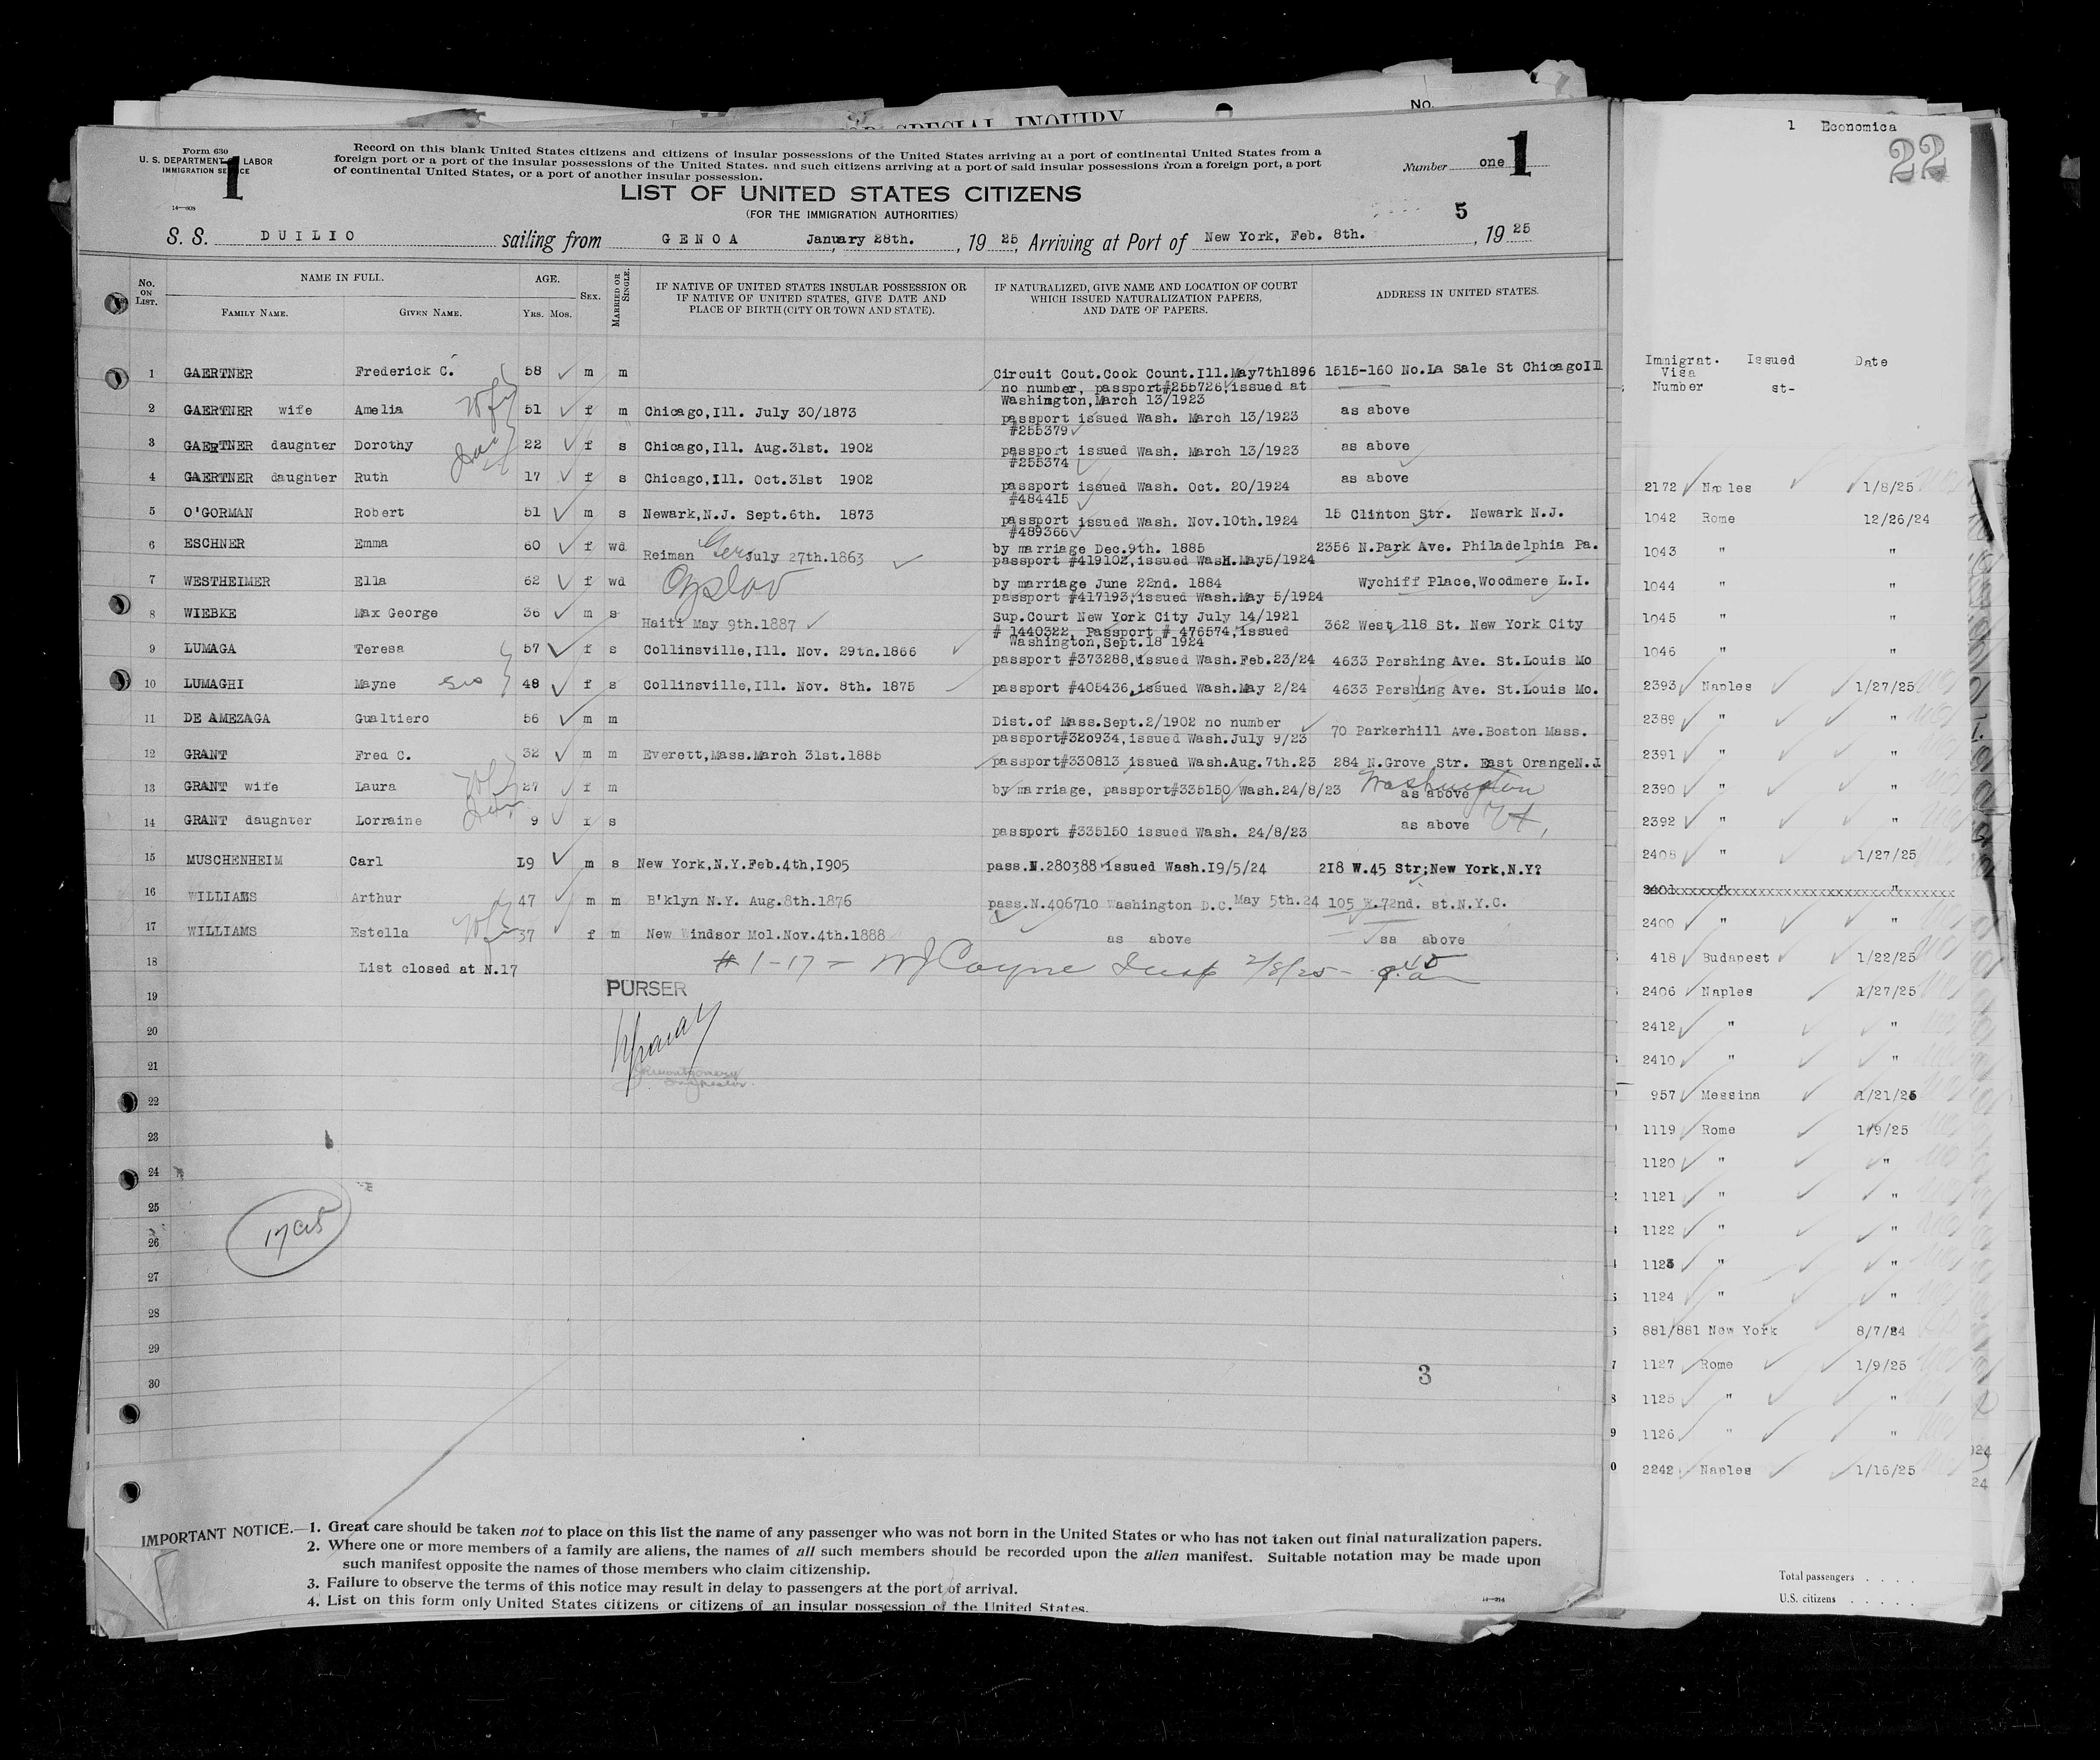 No.
SPECIAL INQUIRY
Form 630
U. S. DEPARTMENT OF LABOR
IMMIGRATION SERVICE
1
14—808
Record on this blank United States citizens and citizens of insular possessions of the United States arriving at a port of continental United States from a
foreign port or a port of the insular possessions of the United States. and such citizens arriving at a port of said insular possessions from a foreign port, a port
of continental United States, or a port of another insular possession.
Number one 1
LIST OF UNITED STATES CITIZENS
(FOR THE IMMIGRATION AUTHORITIES)
5
S. S. DUILIO sailing from GENOA January 28th., 19 25, Arriving at Port of New York, Feb. 8th., 19 25
No. ON LIST.
NAME IN FULL.
FAMILY NAME. GIVEN NAME.
AGE.
YRS. MOS.
SEX.
MARRIED OR SINGLE.
IF NATIVE OF UNITED STATES INSULAR POSSESSION OR
IF NATIVE OF UNITED STATES, GIVE DATE AND
PLACE OF BIRTH (CITY OR TOWN AND STATE).
IF NATURALIZED, GIVE NAME AND LOCATION OF COURT
WHICH ISSUED NATURALIZATION PAPERS,
AND DATE OF PAPERS.
ADDRESS IN UNITED STATES.
1 GAERTNER Frederick C. 58 m m Circuit Cout.Cook Count.Ill.May7th1896 1515-160 No.La Sale St ChicagoIll
no number, passport#255726,issued at
Washington,March 13/1923
2 GAERTNER wife Amelia Wife 51 f m Chicago,Ill. July 30/1873 passport issued Wash. March 13/1923 as above
#255379
3 GAERTNER daughter Dorothy 22 f s Chicago,Ill. Aug.31st. 1902 passport issued Wash. March 13/1923 as above
#255374
4 GAERTNER daughter Ruth 17 f s Chicago,Ill. Oct.31st 1902 passport issued Wash. Oct. 20/1924 as above
#484415
5 O'GORMAN Robert 51 m s Newark,N.J. Sept.6th. 1873 passport issued Wash. Nov.10th.1924 15 Clinton Str. Newark N.J.
#489366
6 ESCHNER Emma 60 f wd Reiman Ger July 27th.1863 by marriage Dec.9th. 1885 2356 N.Park Ave. Philadelphia Pa.
passport #419102,issued WasH.May5/1924
7 WESTHEIMER Ella 62 f wd by marriage June 22nd. 1884 Wychiff Place,Woodmere L.I.
passport #417193,issued Wash.May 5/1924
8 WIEBKE Max George 36 m s Haiti May 9th.1887 Sup.Court New York City July 14/1921 362 West 118 St. New York City
# 1440322, Passport # 476574,issued
Washington,Sept.18 1924
9 LUMAGA Teresa 57 f s Collinsville,Ill. Nov. 29th.1866 passport #373288,issued Wash.Feb.23/24 4633 Pershing Ave. St.Louis Mo
10 LUMAGHI Mayne sis 48 f s Collinsville,Ill. Nov. 8th. 1875 passport #405436,issued Wash.May 2/24 4633 Pershing Ave. St.Louis Mo.
11 DE AMEZAGA Gualtiero 56 m m Dist.of Mass.Sept.2/1902 no number 70 Parkerhill Ave.Boston Mass.
passport#320934,issued Wash.July 9/23
12 GRANT Fred C. 32 m m Everett,Mass.March 31st.1885 passport#330813 issued Wash.Aug.7th.23 284 N.Grove Str. East OrangeN.J
13 GRANT wife Laura Wife 27 f m by marriage, passport#335150 Wash.24/8/23 as above Washington
14 GRANT daughter Lorraine 9 f s passport #335150 issued Wash. 24/8/23 as above Vt,
15 MUSCHENHEIM Carl 19 m s New York,N.Y.Feb.4th,1905 pass.N.280388 issued Wash.19/5/24 218 W.45 Str;New York,N.Y?
16 WILLIAMS Arthur 47 m m B'klyn N.Y. Aug.8th.1876 pass.N.406710 Washington D.C. May 5th.24 105 E.72nd. st.N.Y.C.
17 WILLIAMS Estella Wife 37 f m New Windsor Mol.Nov.4th.1888 as above sa above
18 List closed at N.17 # 1-17 = WJ Coyne Insp 2/8/25
PURSER
19
20
21
22
23
24
25
26
27
28
29
30
3
IMPORTANT NOTICE.—1. Great care should be taken not to place on this list the name of any passenger who was not born in the United States or who has not taken out final naturalization papers.
2. Where one or more members of a family are aliens, the names of all such members should be recorded upon the alien manifest. Suitable notation may be made upon
such manifest opposite the names of those members who claim citizenship.
3. Failure to observe the terms of this notice may result in delay to passengers at the port of arrival.
4. List on this form only United States citizens or citizens of an insular possession of the United States.
1 Economica
22
Immigrat. Issued Date
Visa
Number st-
2172 Naples 1/8/25
1042 Rome 12/26/24
1043 " "
1044 " "
1045 " "
1046 " "
2393 Naples 1/27/25
2389 " "
2391 " "
2390 " "
2392 " "
2408 " 1/27/25
2400 " "
418 Budapest 1/22/25
2406 Naples 1/27/25
2412 " "
2410 " "
957 Messina 1/21/25
1119 Rome 1/9/25
1120 " "
1121 " "
1122 " "
1123 " "
1124 " "
881/881 New York 8/7/24
1127 Rome 1/9/25
1125 " "
1126 " "
2242 Naples 1/16/25
Total passengers . . . .
U.S. citizens . . . . .